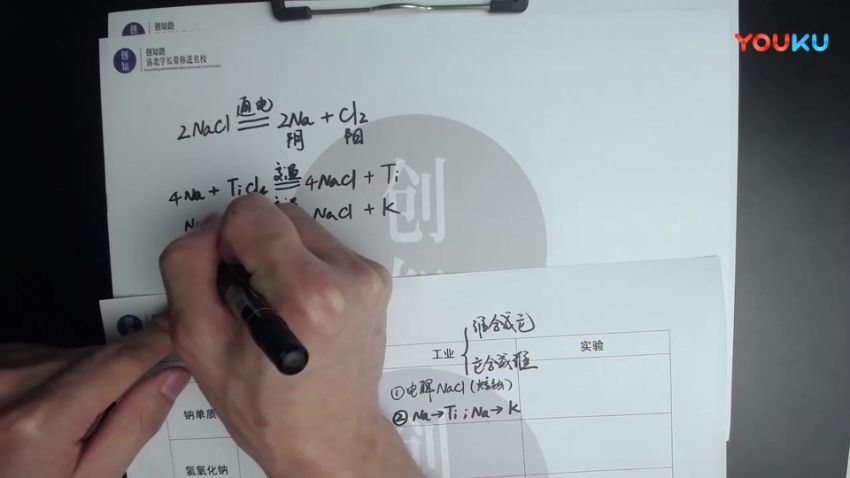 YOUKU
创知路
创知 创知路
清北学长带你进名校
2NaCl 通电 2Na + Cl2
阴 阳
4Na + TiCl4 高温 4NaCl + Ti
Na NaCl + K
创
工业 谁合成它 实验
它合成谁
① 电解NaCl(熔融)
钠单质 ② Na→Ti;Na→K
氢氧化钠 创